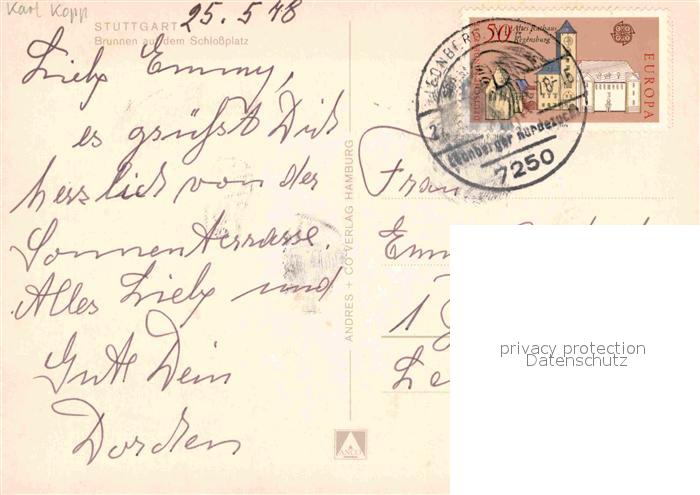 Karl Kopp
25.5.78
STUTTGART
Brunnen auf dem Schloßplatz
Liebe Emmy,
es grüßt Dich
herzlich von der
Sonnenterrasse.
Alles Liebe und
Gute Dein
ANDRES + CO VERLAG HAMBURG
ANCO
50
Altes Rathaus
Regensburg
EUROPA
LEONBERG
Leonberger
7250
Frau
privacy protection
Datenschutz